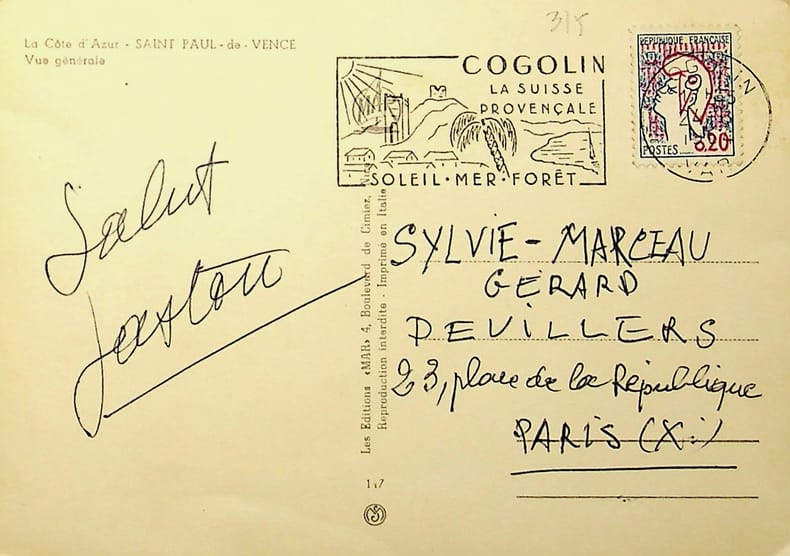 La Côte d'Azur - SAINT PAUL - de - VENCE
Vue générale
3/5
COGOLIN
LA SUISSE
PROVENÇALE
SOLEIL·MER·FORÊT
REPUBLIQUE FRANÇAISE
POSTES
0,20
VAR
Salut
Gaston
Les Editions «MAR» 4, Boulevard de Cimiez,
Reproduction interdite - Imprimé en Italie
SYLVIE - MARCEAU
GERARD
DEVILLERS
23, place de la République
PARIS (X:)
117